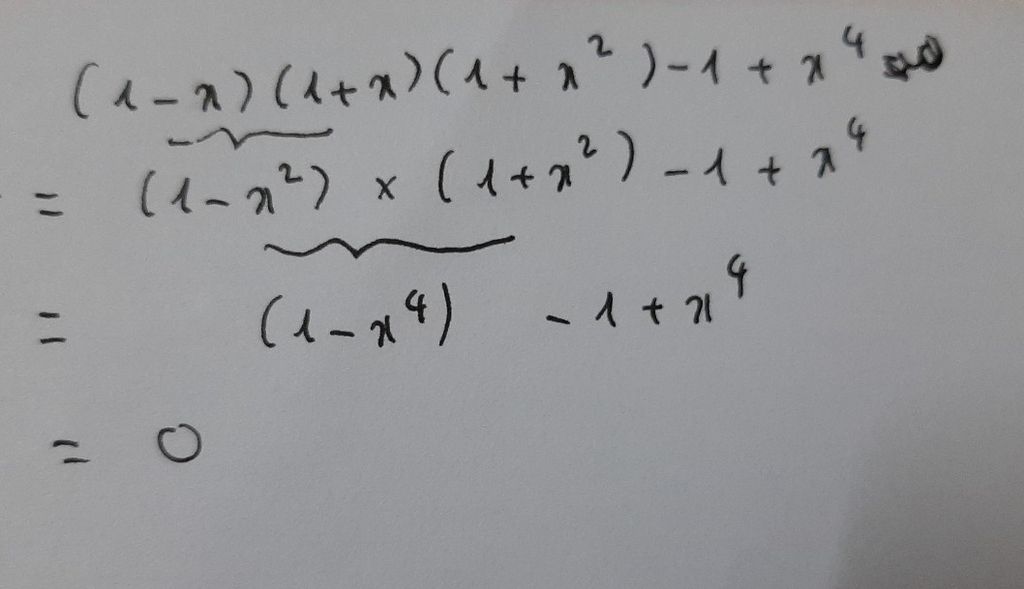 (1-x)(1+x)(1+x²)-1+x⁴
= (1-x²) × (1+x²) -1+x⁴
= (1-x⁴) -1+x⁴
= 0